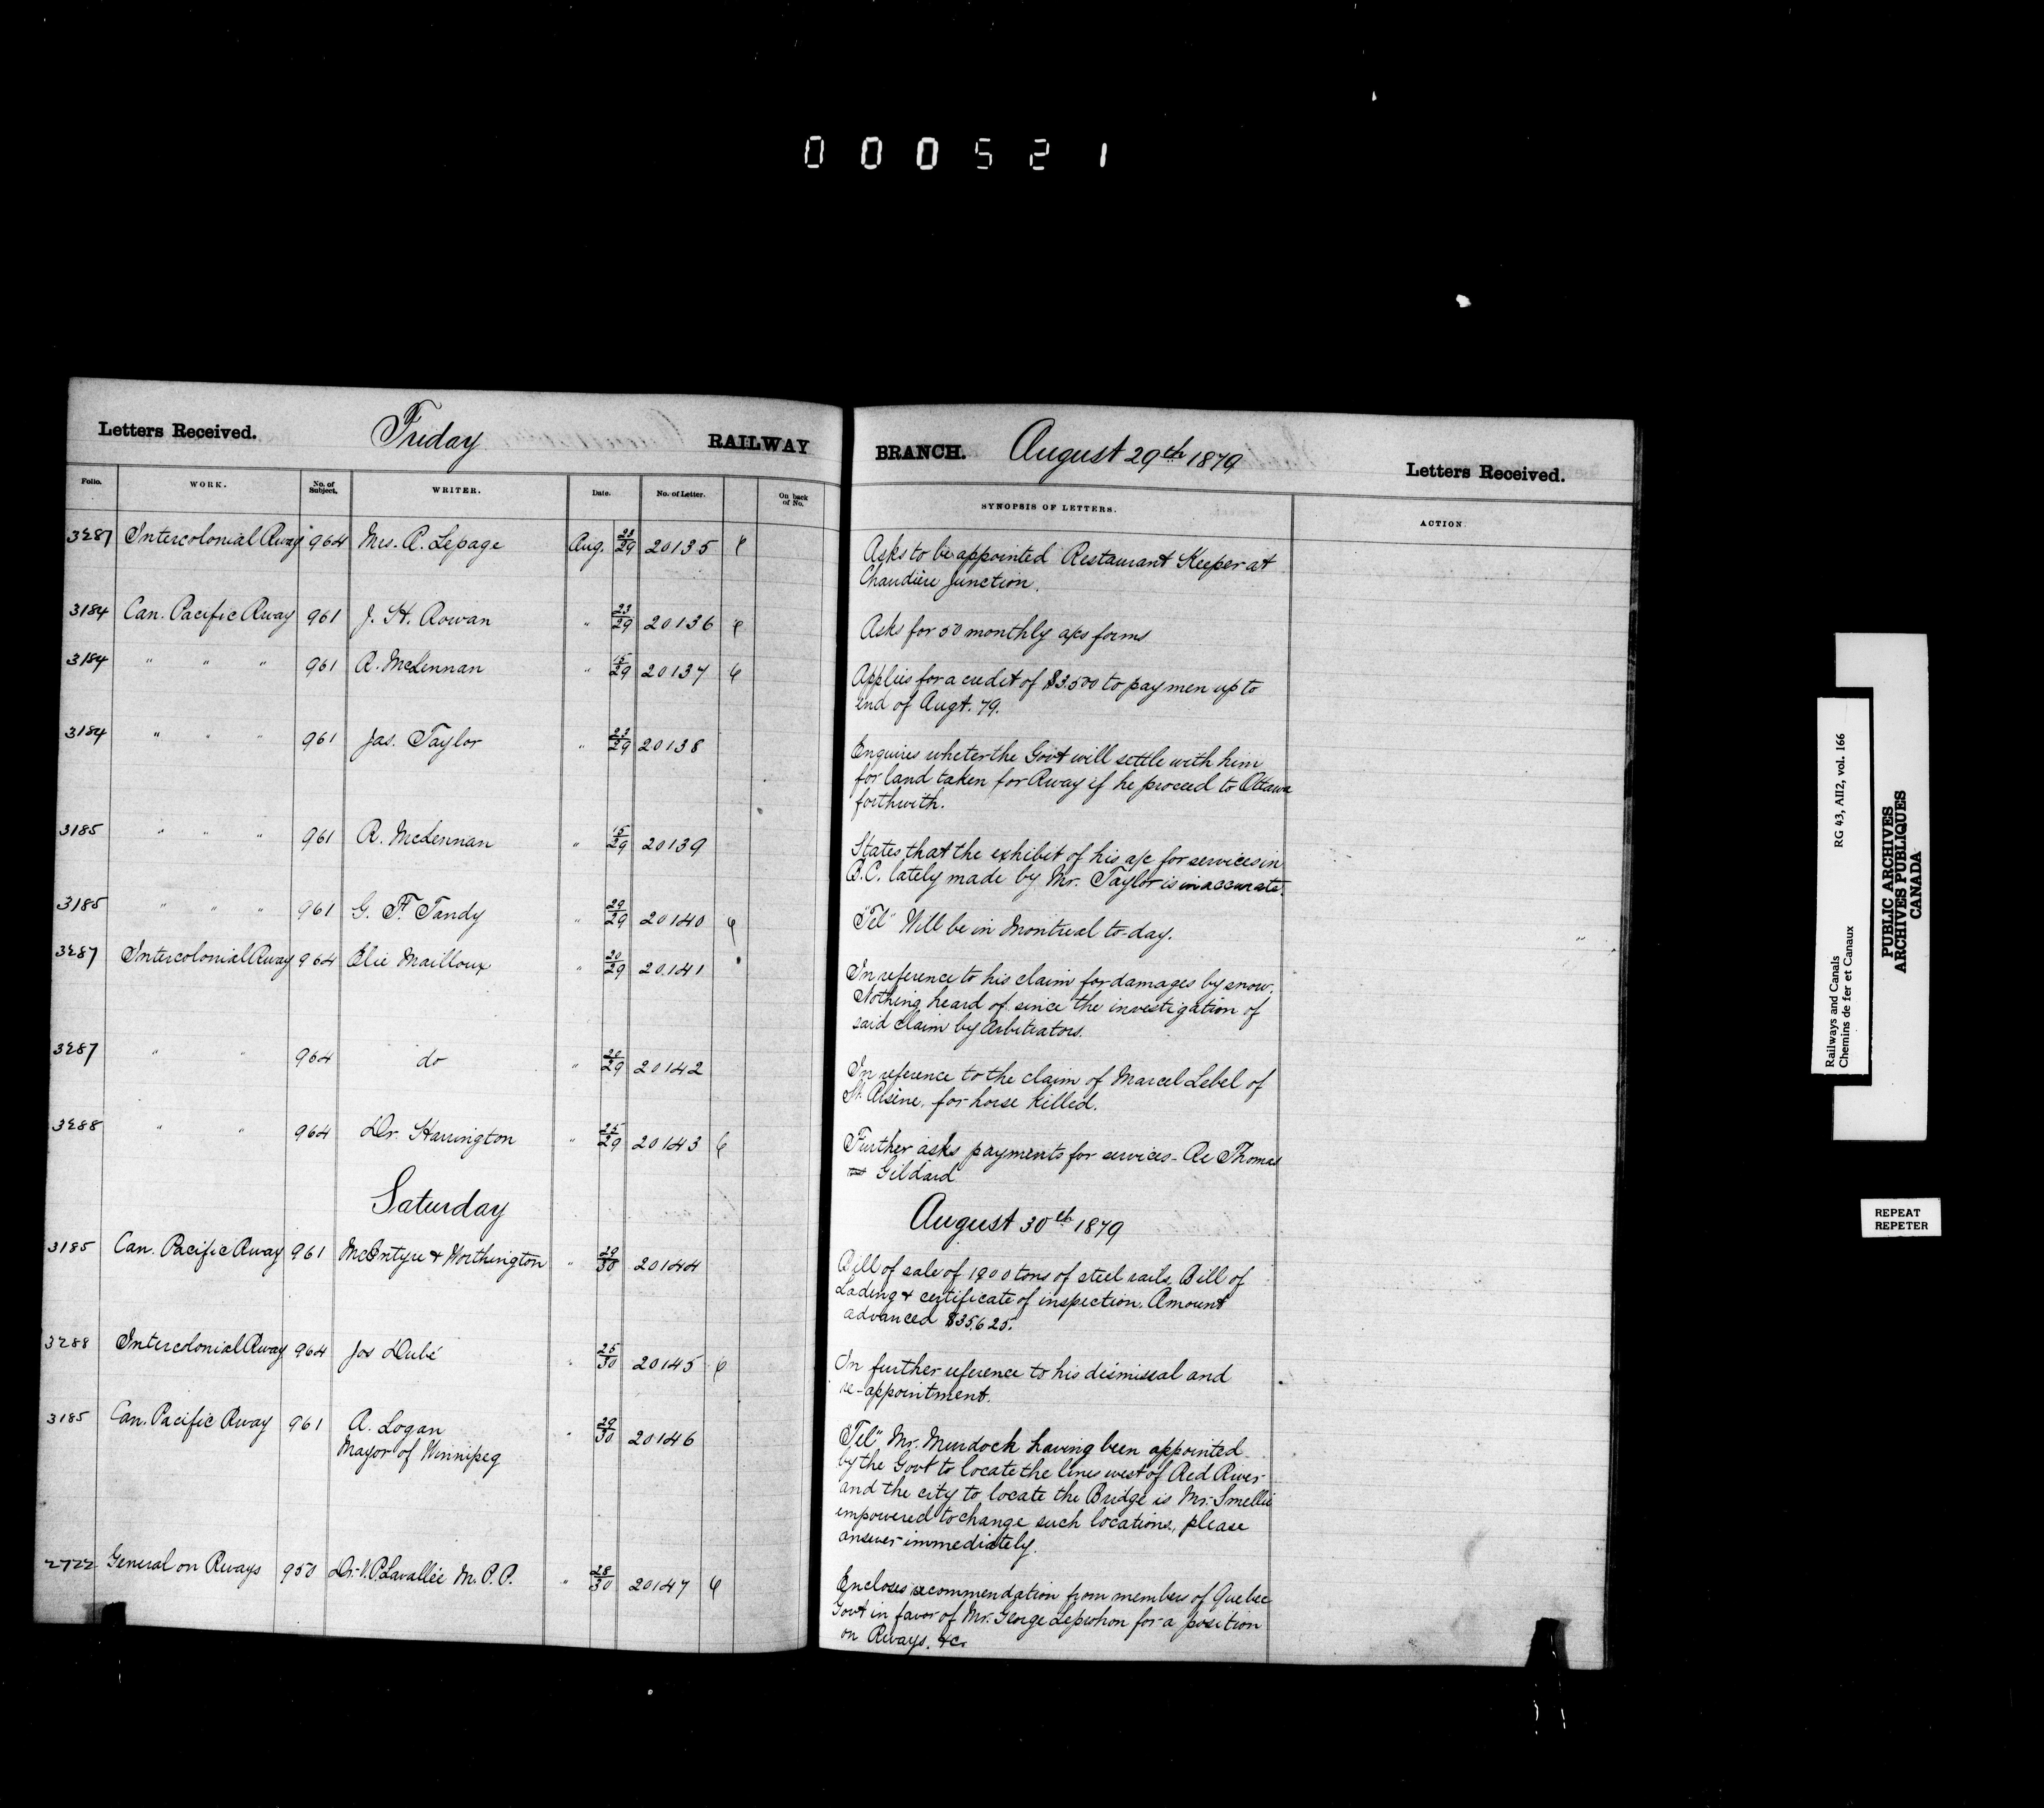 000521
Letters Received. Friday RAILWAY BRANCH. August 29th 1879 Letters Received.
Folio. WORK. No. of Subject. WRITER. Date. No. of Letter. On back of No. SYNOPSIS OF LETTERS. ACTION.
3287 Intercolonial Rway 964 Mrs. A. Lepage Aug. 28/29 20135 Asks to be appointed Restaurant Keeper at
Chaudière Junction.
3184 Can. Pacific Rway 961 J. H. Rowan " 23/29 20136 Asks for 50 monthly a/cs forms
3184 " " " 961 R. McLennan " 15/29 20137 Applies for a credit of $3.500 to pay men up to
end of Augt. 79.
3184 " " " 961 Jas. Taylor " 23/29 20138 Enquires wheter the Govt will settle with him
for land taken for Rway if he proceed to Ottawa
forthwith.
3185 " " " 961 R. McLennan " 15/29 20139 States that the exhibit of his a/c for services in
B.C. lately made by Mr. Taylor is inaccurate.
3185 " " " 961 G. F. Tandy " 29/29 20140 "Tel" Will be in Montreal to-day.
3287 Intercolonial Rway 964 Elie Mailloux " 20/29 20141 In reference to his claim for damages by snow.
Nothing heard of since the investigation of
said claim by Arbitrators.
3287 " " 964 do " 20/29 20142 In reference to the claim of Marcel Lebel of
St. Arsène, for horse killed.
3288 " " 964 Dr. Harrington " 25/29 20143 Further asks payments for services - Re Thomas
Gildard
Saturday August 30th 1879
3185 Can. Pacific Rway 961 McIntyre & Worthington " 29/30 20144 Bill of sale of 1900 tons of steel rails, Bill of
Lading & certificate of inspection. Amount
advanced $35,625.
3288 Intercolonial Rway 964 Jos Dubé " 25/30 20145 In further reference to his dismissal and
re-appointment.
3185 Can. Pacific Rway 961 A. Logan " 29/30 20146 "Tel" Mr. Murdock having been appointed
Mayor of Winnipeg
by the Govt to locate the lines west of Red River
and the city to locate the Bridge is Mr. Smellie
empowered to change such locations, please
answer immediately.
2722 General on Rways 950 Dr. V. P. Lavallée M.P.P. " 28/30 20147 Encloses recommendation from members of Quebec
Govt in favor of Mr. George Leprohon for a position
on Rways. &c.
Railways and Canals RG 43, AII2, vol. 166
Chemins de fer et Canaux
PUBLIC ARCHIVES
ARCHIVES PUBLIQUES
CANADA
REPEAT
REPETER